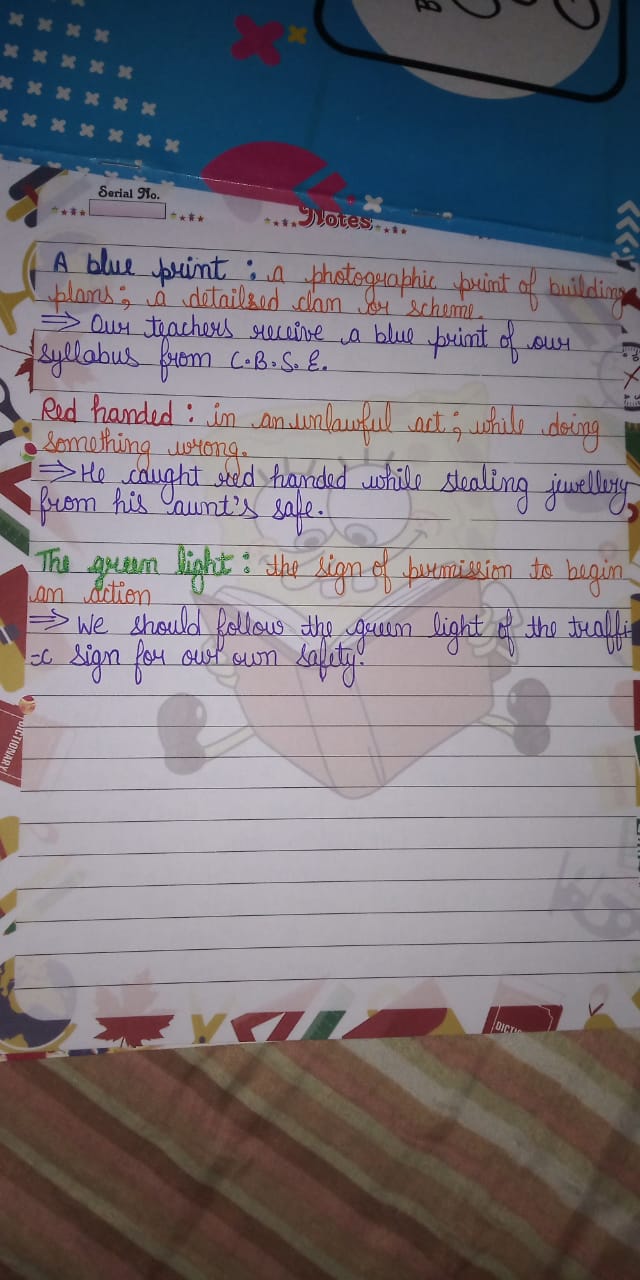 B
Serial No.
Notes
A blue print : a photographic print of building
plans; a detailsed clan or scheme.
⇒ Our teachers receive a blue print of our
syllabus from C.B.S.E.
Red handed : in an unlawful act ; while doing
something wrong.
⇒ He caught red handed while stealing jewellery
from his aunt's safe.
The green light : the sign of permission to begin
an action
⇒ We should follow the green light of the traffi-
-c sign for our own safety.
DICTIONARY